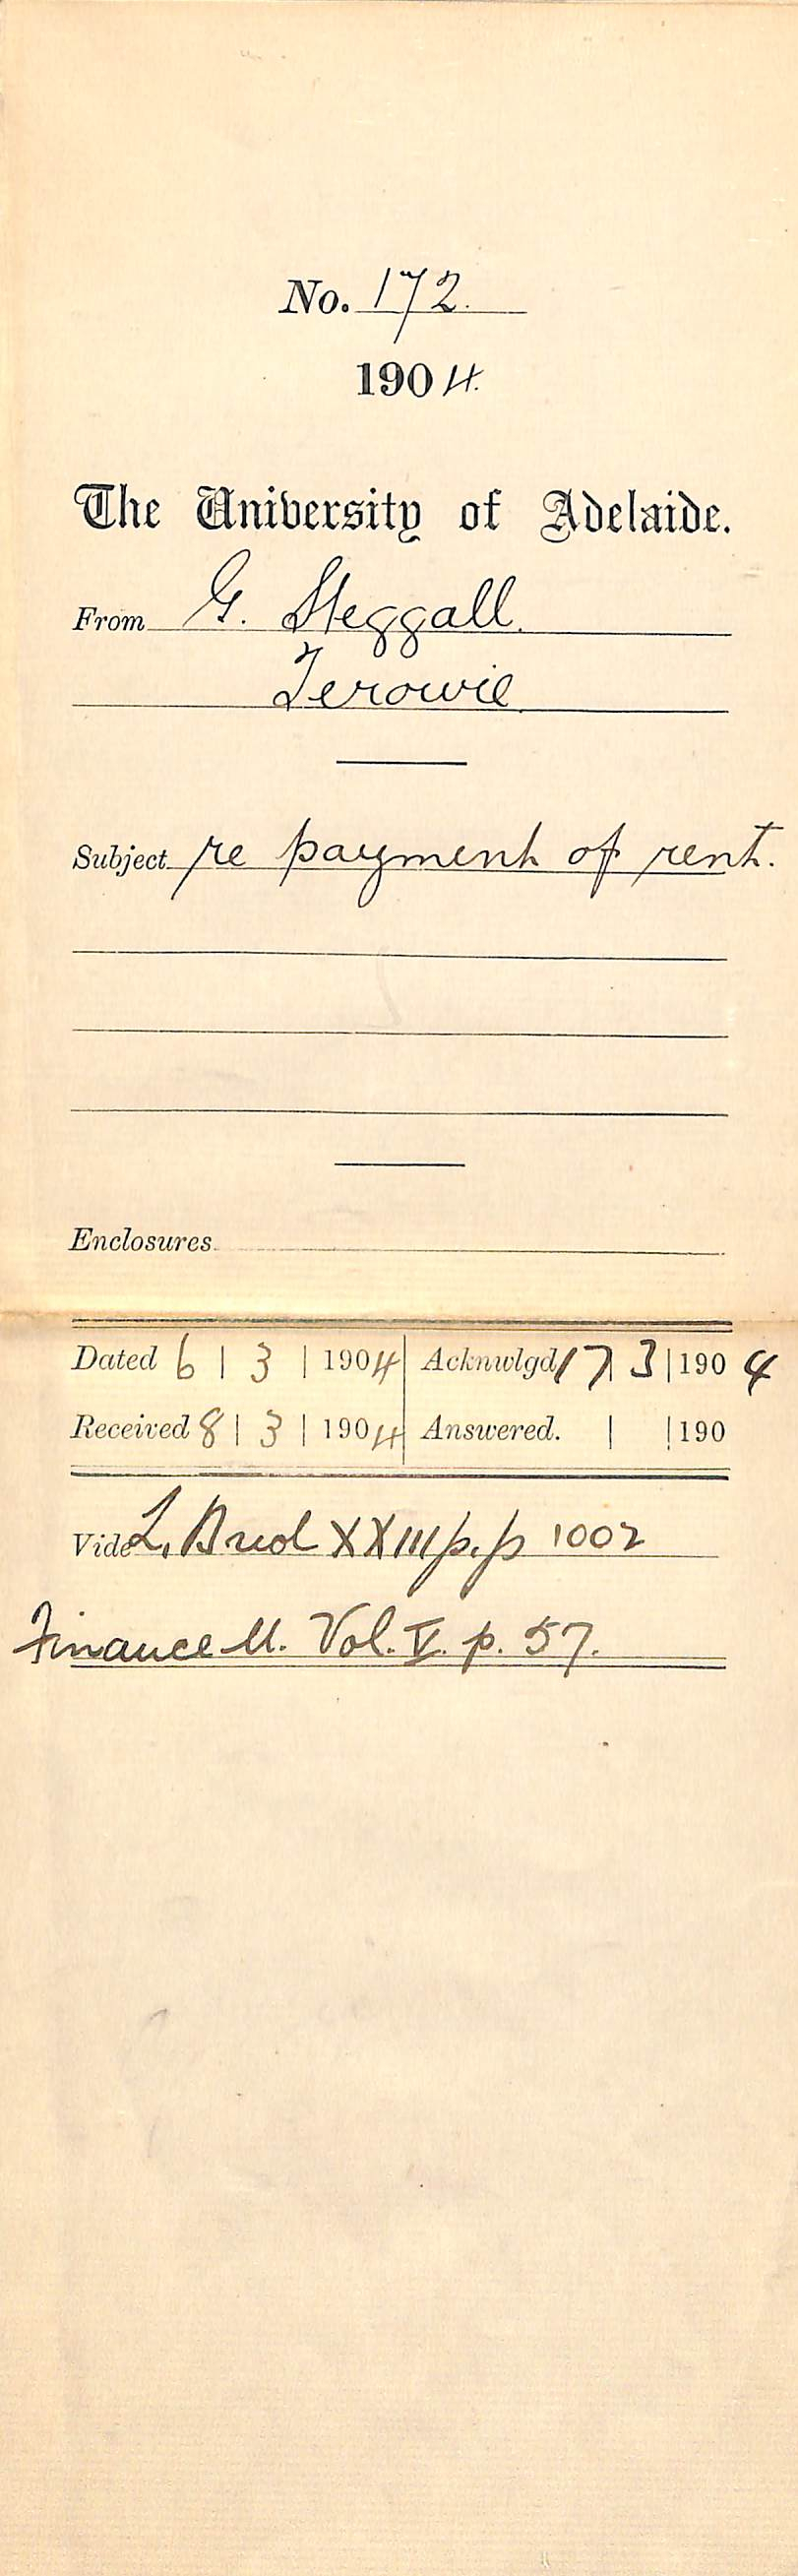 No. 172.
1904.
The University of Adelaide.
From G. Steggall.
Terowie
Subject re payment of rent.
Enclosures
Dated 6 | 3 | 1904 Acknwlgd 17 | 3 | 1904
Received 8 | 3 | 1904 Answered. | | 190
Vide L. XXIII p. p 1002
Finance M. Vol. V. p. 57.